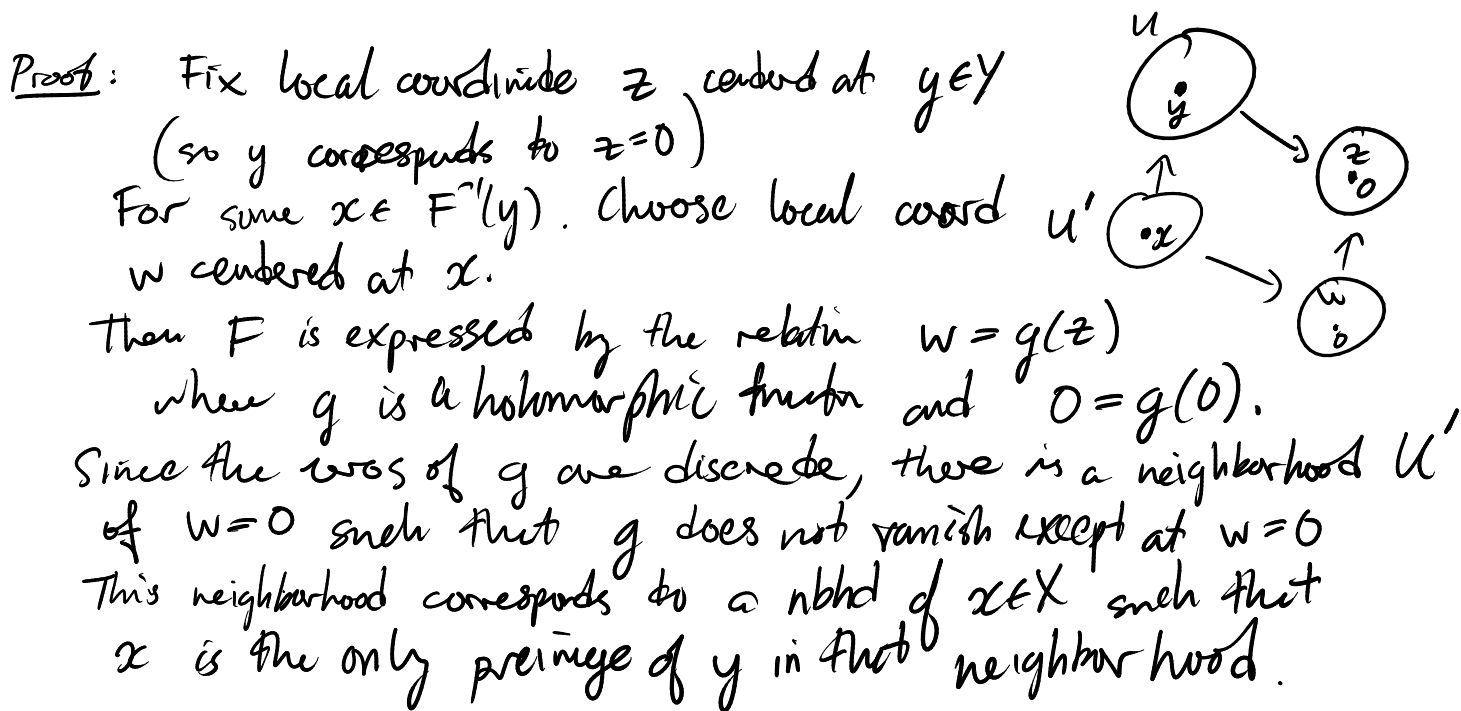 Proof: Fix local coordinate z centered at y ∈ Y
(so y corresponds to z=0)
For some x ∈ F⁻¹(y). Choose local coord
w centered at x.
Then F is expressed by the relation w = g(z)
where g is a holomorphic function and 0 = g(0).
Since the zeros of g are discrete, there is a neighborhood U'
of w=0 such that g does not vanish except at w=0
This neighborhood corresponds to a nbhd of x∈X such that
x is the only preimage of y in that neighborhood.
U
y
z
0
U'
x
w
0